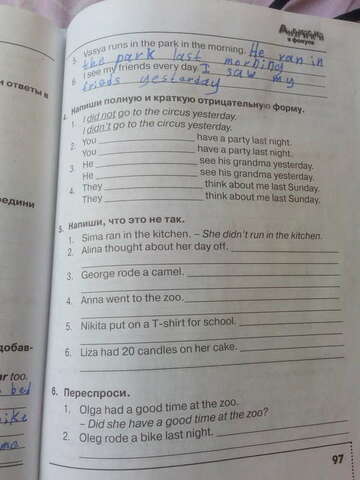 в фокусе
5. Vasya runs in the park in the morning. He ran in
the park last morning
6. I see my friends every day. I saw my
frieds yesterday
4. Напиши полную и краткую отрицательную форму.
1. I did not go to the circus yesterday.
I didn't go to the circus yesterday.
2. You ____________ have a party last night.
You ____________ have a party last night.
3. He ____________ see his grandma yesterday.
He ____________ see his grandma yesterday.
4. They ____________ think about me last Sunday.
They ____________ think about me last Sunday.
5. Напиши, что это не так.
1. Sima ran in the kitchen. – She didn't run in the kitchen.
2. Alina thought about her day off. ____________
3. George rode a camel. ____________
4. Anna went to the zoo. ____________
5. Nikita put on a T-shirt for school. ____________
6. Liza had 20 candles on her cake. ____________
6. Переспроси.
1. Olga had a good time at the zoo.
– Did she have a good time at the zoo?
2. Oleg rode a bike last night. ____________
97
ответы в
добав-
too.
bed